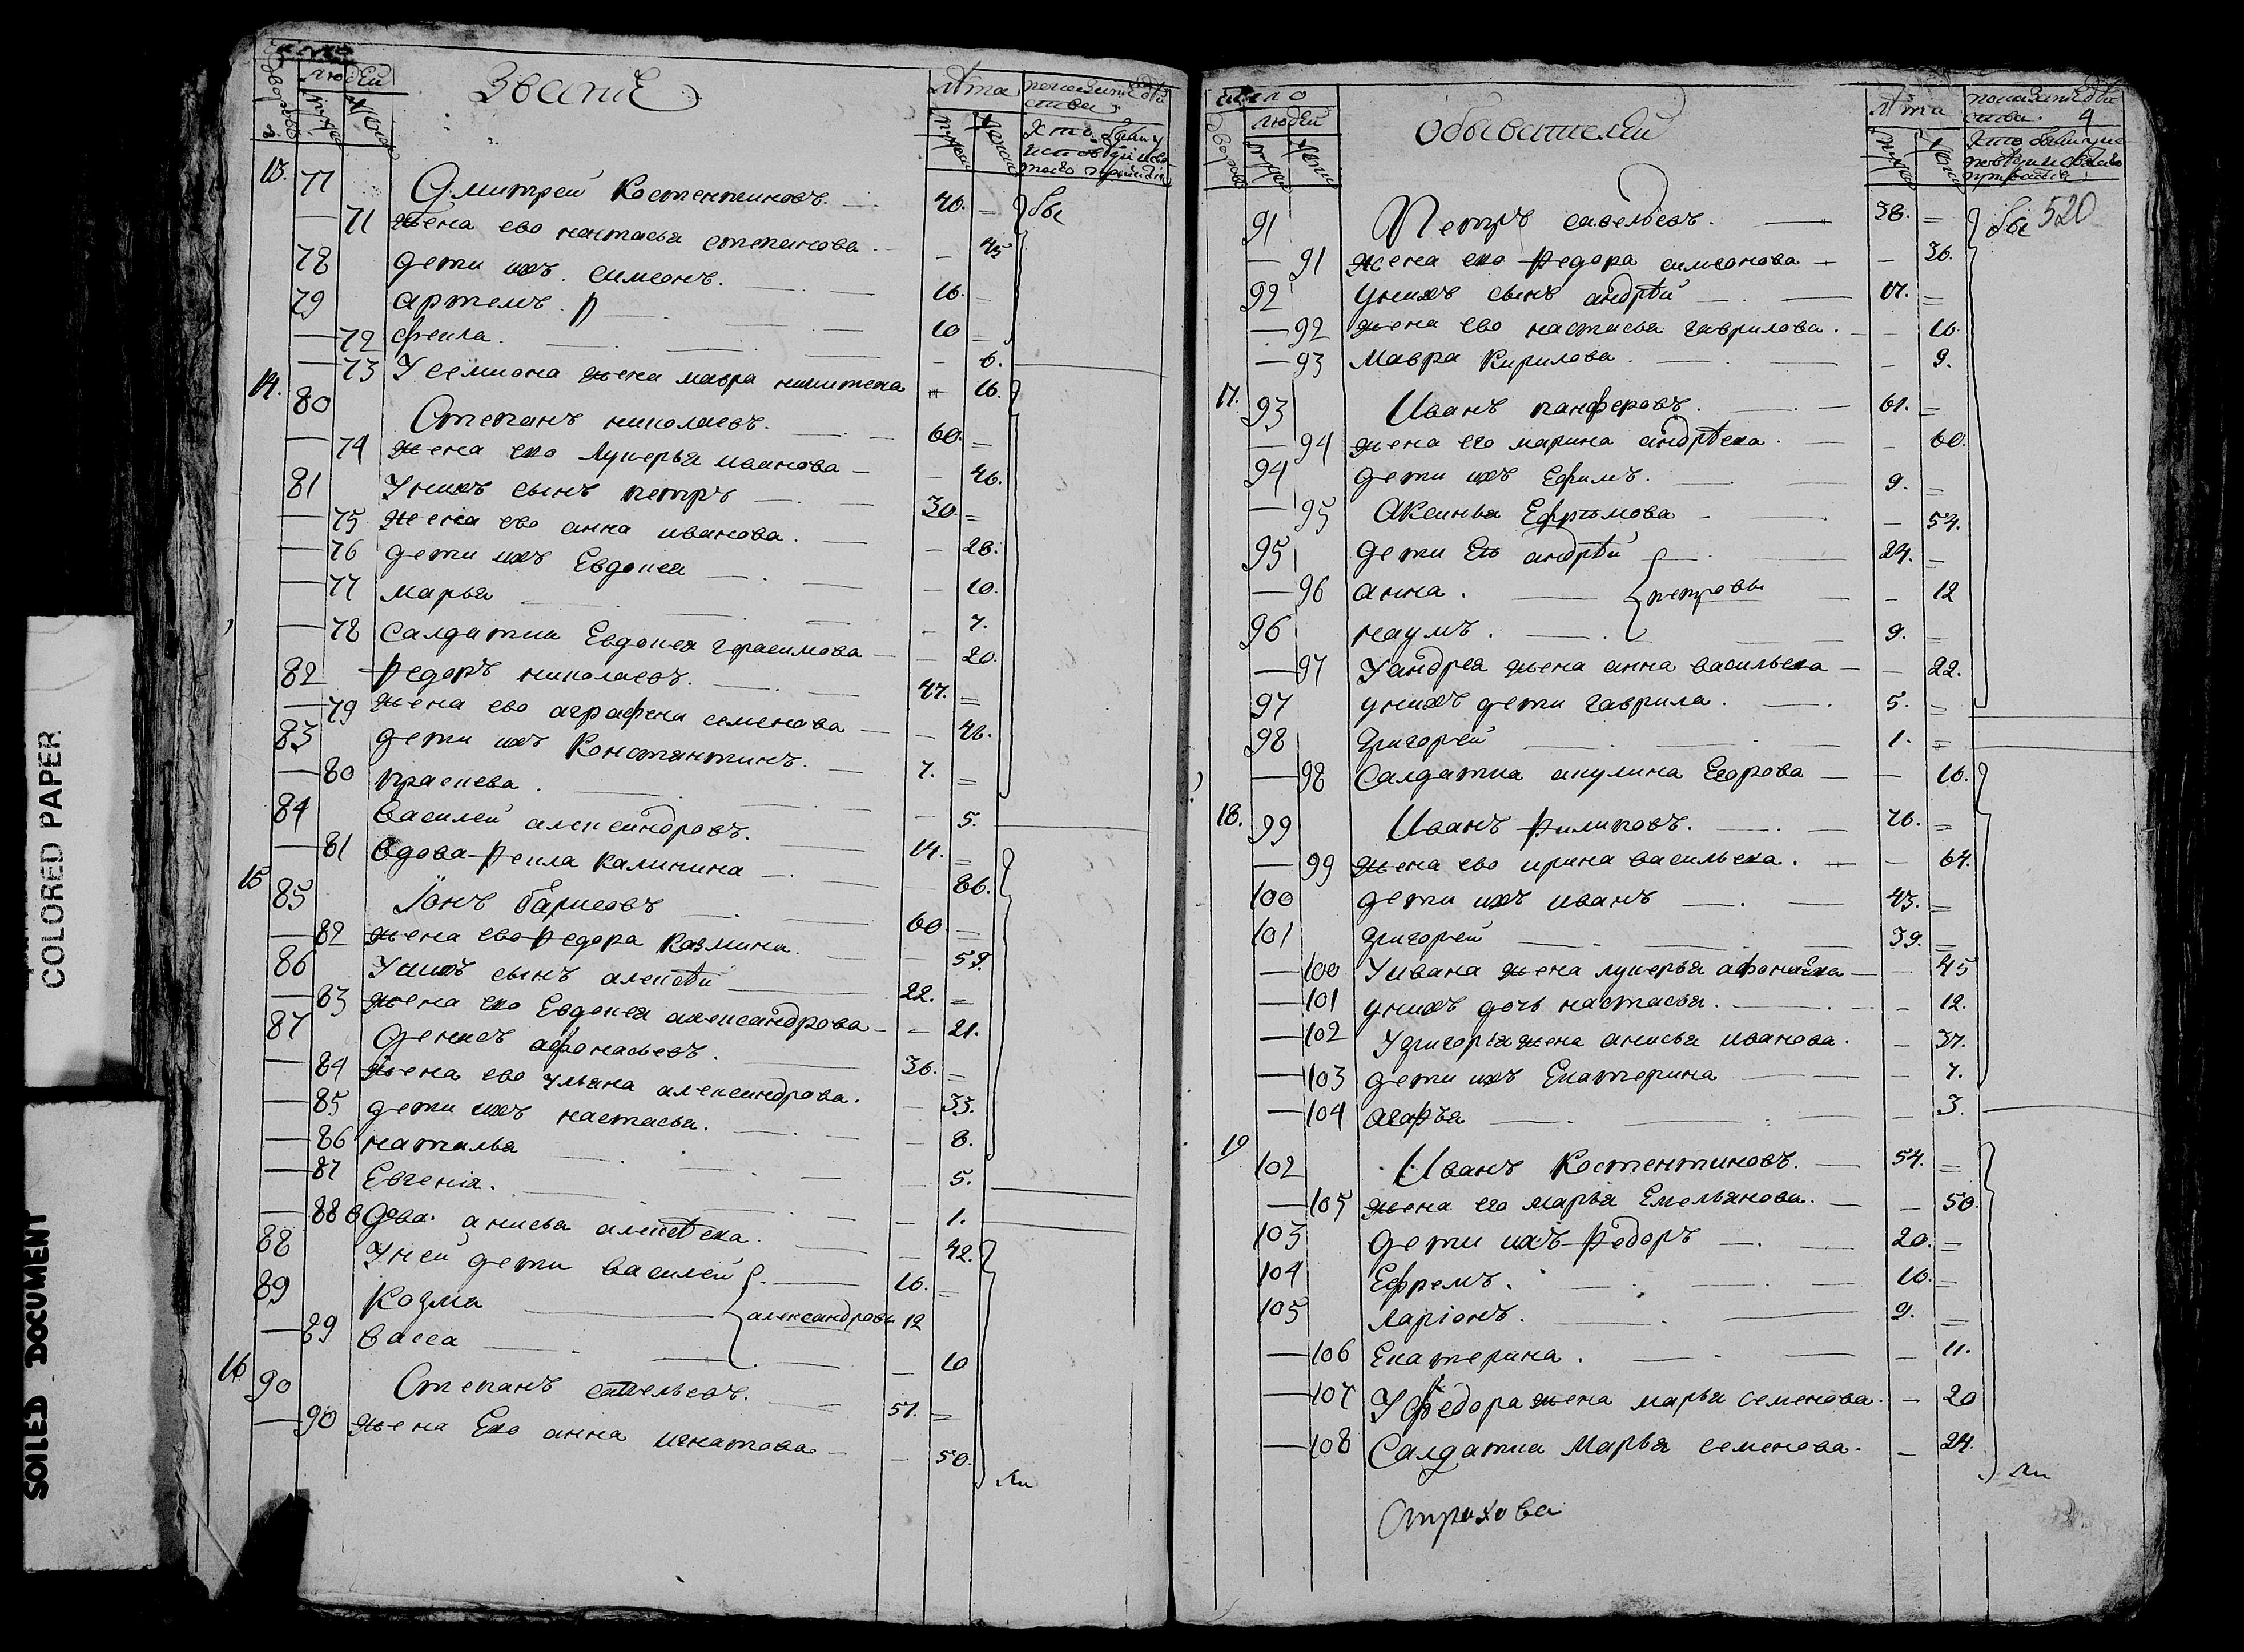 число
людей
Звание
лѣта
показание дѣй
ствия
дворовъ
мужеска
женска
мужеска
женска
Кто былъ у
исповѣди и свя
таго причастия
13. 77 Дмитрей Костентиновъ. 40. = бы
— 71 жена ево настасья степанова. — 45
78 дети ихъ. симеонъ. 16. =
79 артемъ. 10 =
— 72 фекла. — 6.
— 73 У семиона жена мавра никитена — 16.
14. 80 Степанъ николаевъ. 60. =
— 74 жена ево лукерья иванова — — 46.
81 У нихъ сынъ петръ — 30. =
— 75 жена ево анна иванова. — 28.
— 76 дети ихъ Евдокея — — 10.
— 77 марья — 7.
— 78 салдатка Евдокея герасимова — — 20.
82 Федоръ николаевъ. 47. =
— 79 жена ево аграфена семенова — — 46.
83 дети ихъ Константинъ. 7. =
— 80 праскева. — 5.
84 василей александровъ. 14. =
— 81 вдова Фекла калинина — — 86.
15 85 Їонъ барисовъ 60. =
— 82 жена ево Федора казмина. — 59.
86 У нихъ сынъ алексѣй 22. =
— 83 жена ево Евдокея александрова — — 21.
87 Денисъ афонасьевъ. 36. =
— 84 жена ево ульяна александрова. — 33.
— 85 дети ихъ настасья. — 8.
— 86 наталья — 5.
— 87 Евгения. — 1.
— 88 вдова. анисья алексѣева. — 42.
88 У ней дети василей 16. =
89 Козма александровы 12
— 89 васса — 10
16 90 Степанъ савельевъ. 57. =
— 90 жена Ево анна игнатова — — 50.
ли
число
людей
обывателей
лѣта
показание дѣй
ствия. 4
дворовъ
мужеска
женска
мужеска
женска
Кто былъ у ис
поведи и святаго
причастия
91 Петръ савельевъ. — 38. = бы 520
— 91 жена ево Федора симеонова — — 36.
92 У нихъ сынъ андрѣй — 17. =
— 92 жена ево настасья гаврилова. — 16.
— 93 Мавра Кирилова. — 9.
17. 93 Иванъ панферовъ. — 61. =
— 94 жена его марина андрѣева. — 60.
94 дети ихъ Ефимъ. 9. =
— 95 Аксинья Ефримова — 54.
95 дети Ея андрѣй 24. =
— 96 анна. петровы — 12
96 наумъ. 9. =
— 97 У андрея жена анна васильева — — 22.
97 у нихъ дети гаврила. 5. =
98 Григорей 1. =
— 98 Салдатка акулина Егорова — — 16.
18. 99 Иванъ Филиповъ. — 76. =
— 99 жена ево ирина васильева. — 64.
100 дети ихъ иванъ — 43. =
101 Григорей 39. =
— 100 У ивана жена лукерья афонасева — — 45
— 101 у нихъ дочь настасья. — 12.
— 102 У григорья жена анисья иванова. — 37.
— 103 дети ихъ Екатерина — — 7.
— 104 агафья — 3.
19 102 Иванъ Костентиновъ. — 54. =
— 105 жена его марья Емельянова. — — 50.
103 дети ихъ Федоръ — 20. =
104 Ефремъ. 16. =
105 ларионъ. 9. =
— 106 Екатерина. — 11.
— 107 У федора жена марья семенова. — 20
— 108 Салдатка Марья семенова. — 24.
ли
Строхова
COLORED PAPER
SOILED DOCUMENT